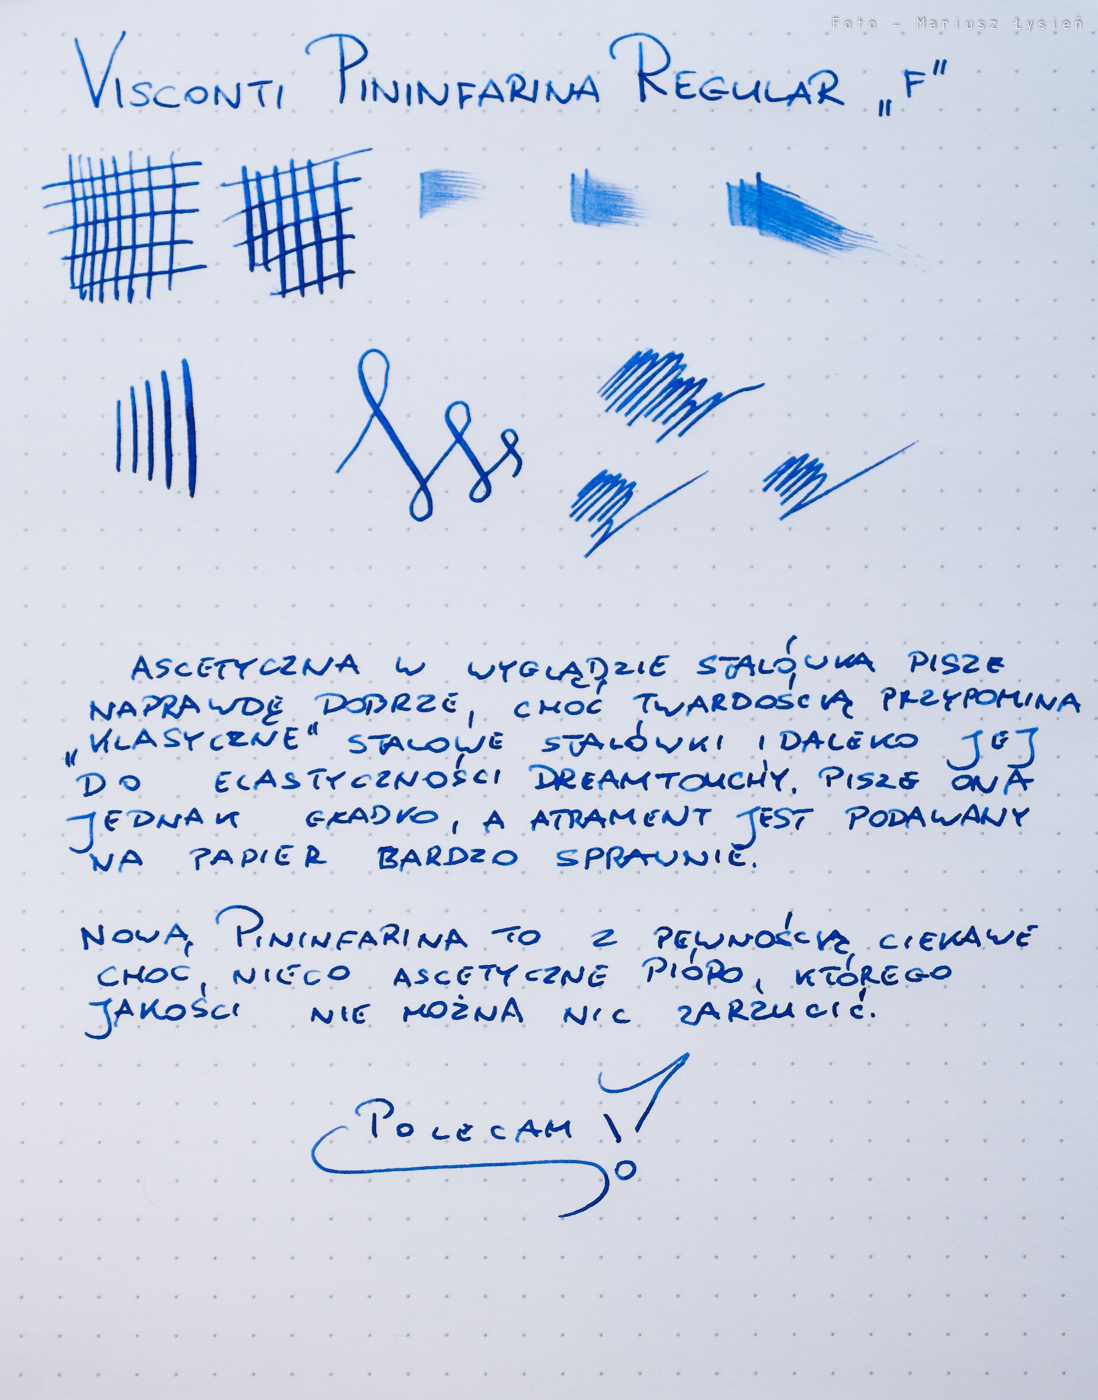 Foto - Mariusz Łysień
Visconti Pininfarina Regular „F”
ASCETYCZNA W WYGLĄDZIE STALÓWKA PISZE
NAPRAWDĘ DOBRZE, CHOĆ TWARDOŚCIĄ PRZYPOMINA
„KLASYCZNE” STALOWE STALÓWKI I DALEKO JEJ
DO ELASTYCZNOŚCI DREAMTOUCHY. PISZE ONA
JEDNAK GŁADKO, A ATRAMENT JEST PODAWANY
NA PAPIER BARDZO SPRAWNIE.
NOWA PININFARINA TO Z PEWNOŚCIĄ CIEKAWE
CHOĆ, NIECO ASCETYCZNE PIÓRO, KTÓREGO
JAKOŚCI NIE MOŻNA NIC ZARZUCIĆ.
POLECAM!